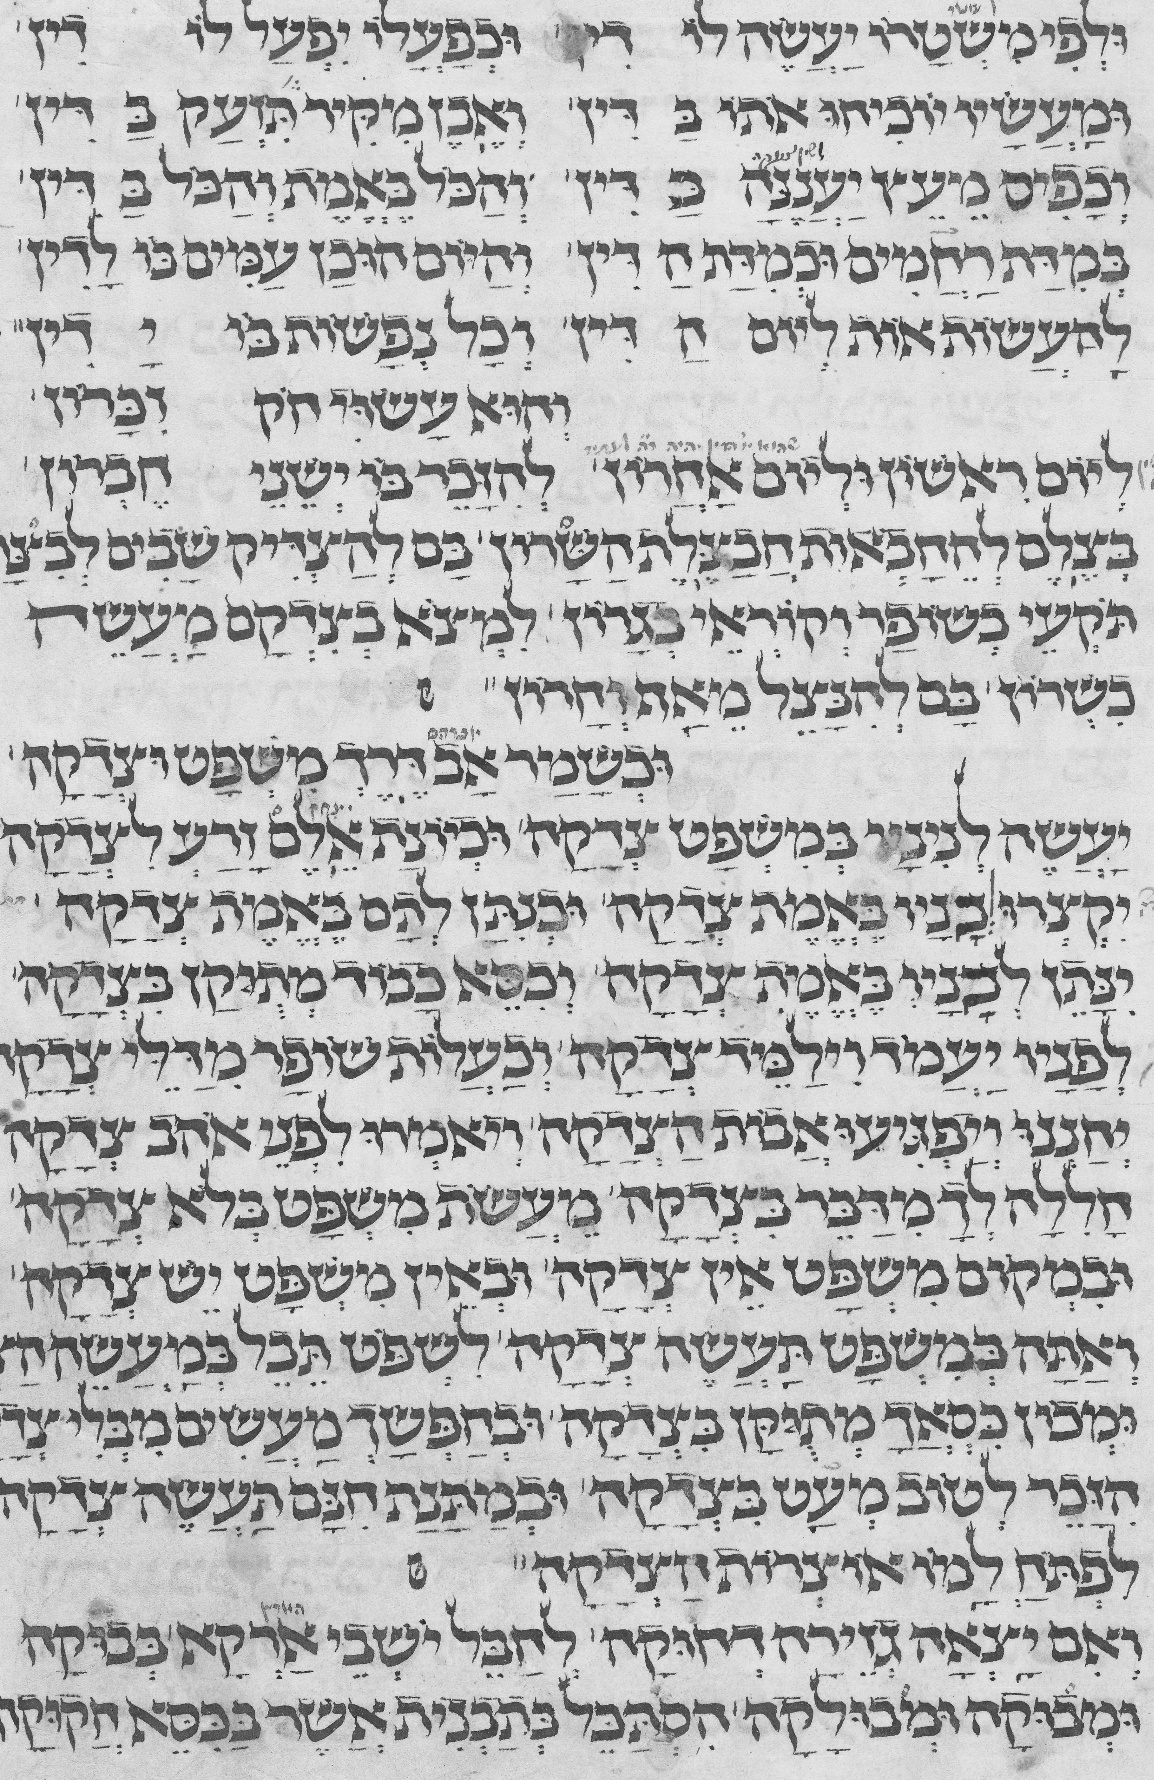 וּלְפִי מִשְׁטָרוֹ יַעֲשֶׂה לוֹ דִין׳ וּכְפָעֳלוֹ יִפְעַל לוֹ דִין׳
וּמַעֲשָׂיו יוֹכִיחוּ אֹתוֹ בַּדִּין׳ וְאֶבֶן מִקִּיר תִּזְעַק בַּדִּין׳
וְכָפִיס מֵעֵץ יַעֲנֶנָּה בַדִּין׳ וְהַכֹּל בֶּאֱמֶת וְהַכֹּל בַּדִּין׳
בְּמִדַּת רַחֲמִים וּבְמִדַּת הַדִּין׳ וְהַיּוֹם הוּכַן עַמִּים בּוֹ לָדִין׳
לַהֲעֲשׂוֹת אוֹת לְיוֹם הַדִּין׳ וְכָל נְפָשׁוֹת בּוֹ יָדִין׃
וְהוּא עָשׂוּי חֹק זִכָּרוֹן׳
לְיוֹם רִאשׁוֹן וּלְיוֹם אַחֲרוֹן׳ לְהִזָּכֵר בּוֹ יְשֵׁנֵי חֶבְרוֹן
בְּצִלָּם לְהֵחָבְאוֹת חֲבַצֶּלֶת הַשָּׁרוֹן׳ בָּם לְהַצְדִּיק שָׁבִים
תֹּקְעֵי בְשׁוֹפָר וְקוֹרְאֵי בְגָרוֹן׳ לִמְצֹא בְצִדְקָם מַעֲשֵׂה
כִשְׁרוֹן׳ בָּם לְהִנָּצֵל מֵאַף וְחָרוֹן׃
וּכְשָׁמַר אַב דֶּרֶךְ מִשְׁפָּט וּצְדָקָה׳
יַעֲשֶׂה לְנִינָיו בְּמִשְׁפָּט צְדָקָה׳ וּכְיוֹנַת אֵלֶם זָרַע לִצְדָקָה
יִקְצְרוּ בָנָיו בֶּאֱמֶת צְדָקָה׳ וּכְנִתַּן לְתָם בֶּאֱמֶת צְדָקָה׳
יִנָּתֵן לְבָנָיו בֶּאֱמֶת צְדָקָה׳ וְכִסֵּא כָבוֹד מְתֻקָּן בִּצְדָקָה׳
לְפָנָיו יַעֲמֹד וִילַמֵּד צְדָקָה׳ וְכַעֲלוֹת שׁוֹפָר מִדַּלֵּי צְדָקָה
יְחַנְּנוּ וְיַפְגִּיעוּ אֲבוֹת הַצְּדָקָה׳ וְיֹאמְרוּ לִפְנֵי אֹהֵב צְדָקָה
חָלִלָה לְךָ מְדַבֵּר בִּצְדָקָה׳ מֵעֲשֹׂת מִשְׁפָּט בְּלֹא צְדָקָה׳
וּבִמְקוֹם מִשְׁפָּט אֵין צְדָקָה׳ וּבְאֵין מִשְׁפָּט יֵשׁ צְדָקָה׳
וְאַתָּה בְּמִשְׁפָּט תַּעֲשֶׂה צְדָקָה׳ לִשְׁפֹּט תֵּבֵל בְּמַעֲשֵׂה
וּמְכוֹן כִּסְאָךְ מְתֻקָּן בִּצְדָקָה׳ וּבְחַפְּשָׂךְ מַעֲשִׂים מִבְּלִי
הִזָּכֵר לְטוֹב מְעַט בִּצְדָקָה׳ וּבְמַתְּנַת חִנָּם תַּעֲשֶׂה צְדָקָה
לִפְתֹּחַ לָמוֹ אוֹצְרוֹת הַצְּדָקָה׃
וְאִם יָצְאָה גְּזֵירָה דְחוּקָה׳ לְחַבֵּל יֹשְׁבֵי אַרְקָא בְּבוּקָה
וּמְבוּקָה וּמְבוּלָקָה׳ הִסְתַּכֵּל בְּתַבְנִית אֲשֶׁר בַּכִּסֵּא חֲקוּקָה